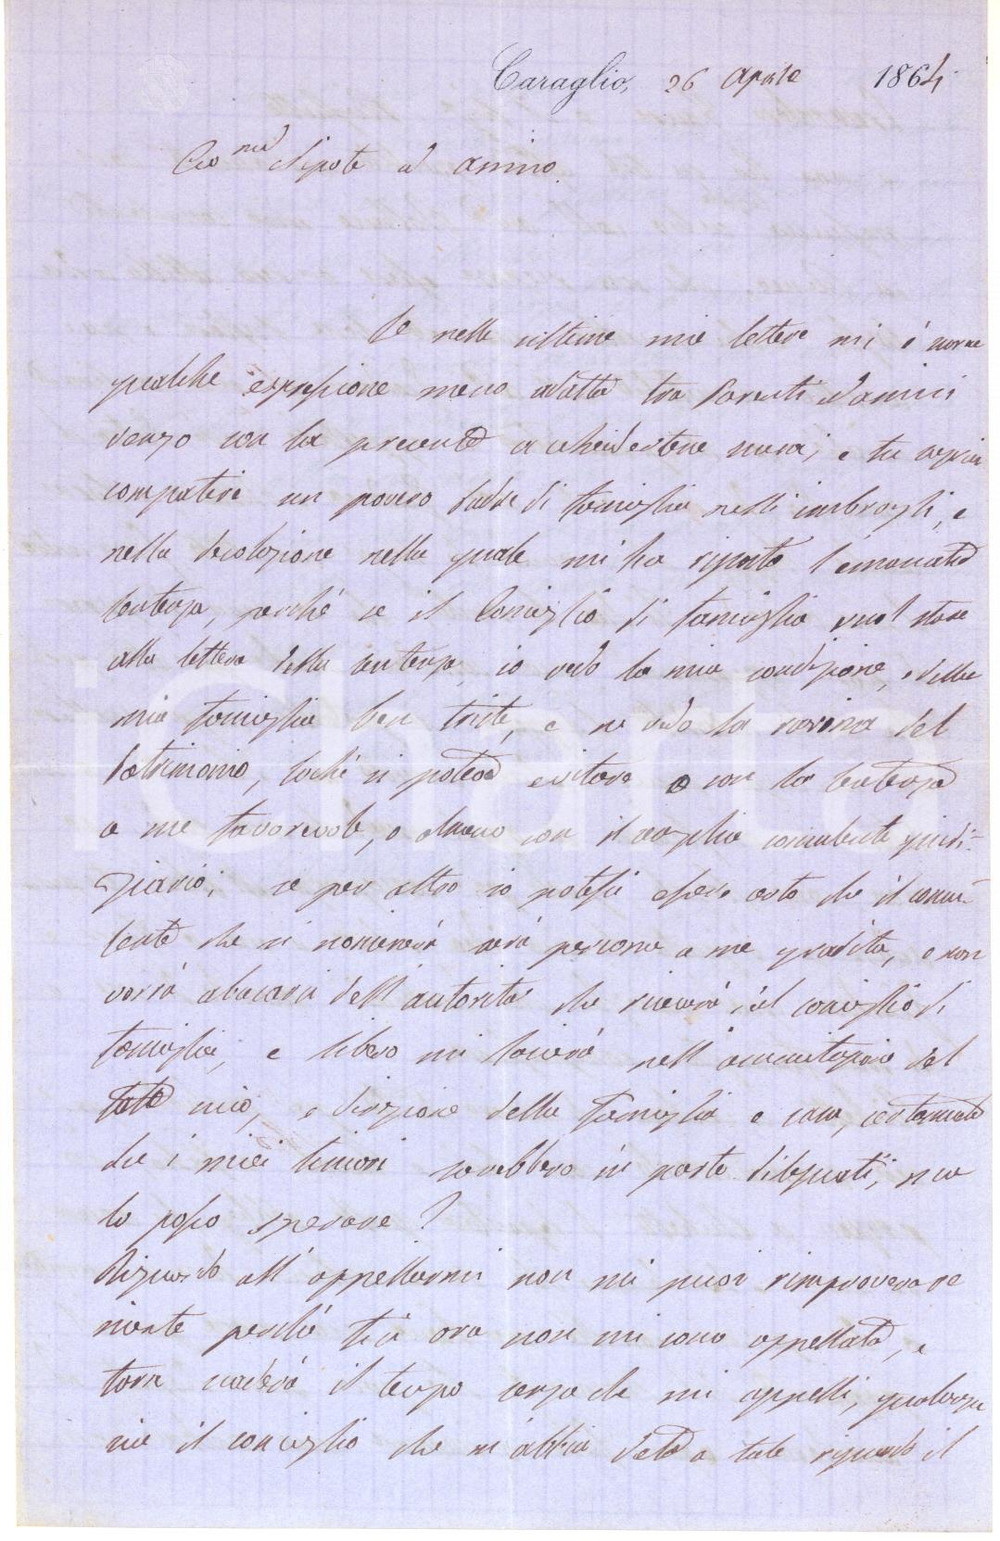 Caraglio, 26 Aprile 1864
Nipote ed amico.
Se nelle ultime mie lettere mi è corsa
qualche espressione meno adatta tra Parenti ed amici
vengo con la presente a chiedertene scusa, e tu saprai
compatire un povero Padre di famiglia nelli imbrogli, e
nella desolazione nella quale mi ha riposto l'emanata
sentenza, perché se il Consiglio di famiglia vuol stare
alla lettera della sentenza, io vedo la mia condizione, e della
mia famiglia ben triste, e ne vedo la rovina del
Patrimonio, locché si poteva evitare o con la sentenza
a me favorevole, o almeno con il semplice consulente giudi-
ziario; se per altro io potessi essere certo che il consu-
lente che si nominerà sarà persona a me gradita, e non
vorrà abusarsi dell'autorità che riceverà dal consiglio di
famiglia, e libero mi lascierà nell'amministrazione del
fatto mio, e direzione della famiglia e casa, certamente
che i miei timori sarebbero in parte dileguati, ma
lo posso sperare?
Riguardo all'appellarmi non mi puoi rimproverare
niente perché fin ora non mi sono appellato, e
forse scaderà il tempo senza che mi appelli, qualunque
sia il consiglio che m'abbia dato a tale riguardo il